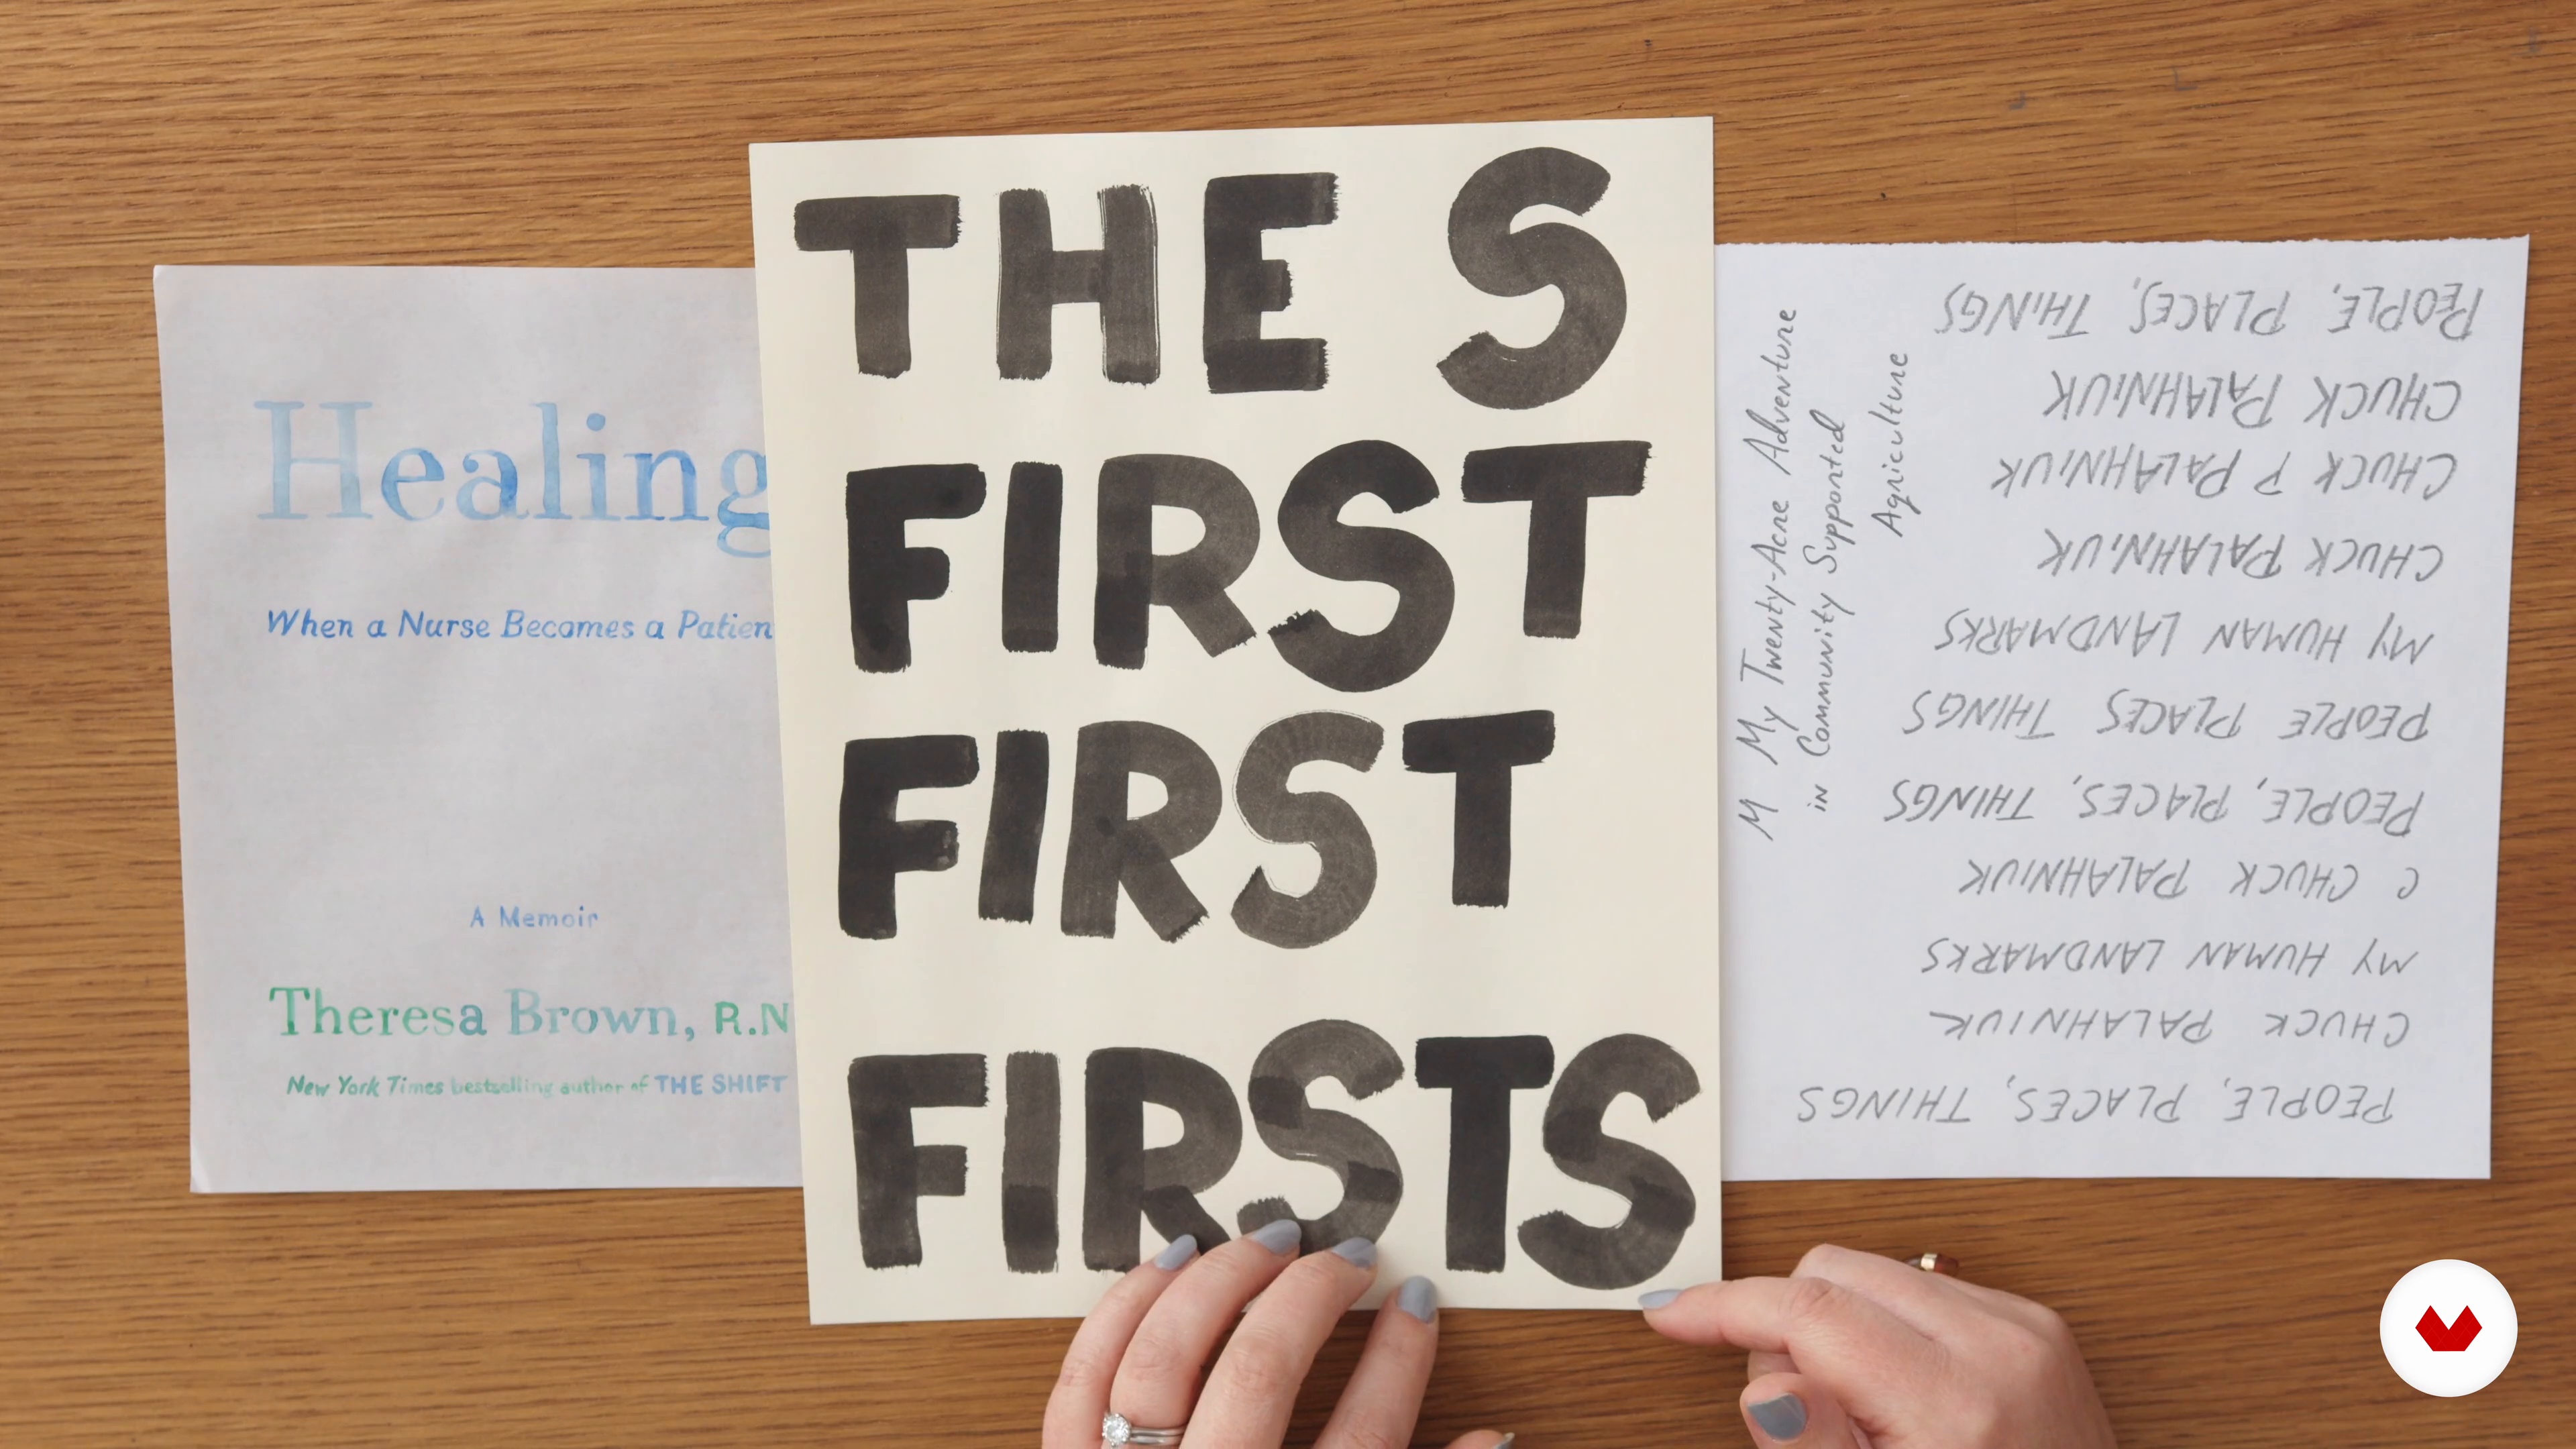 Healing
When a Nurse Becomes a Patien
A Memoir
Theresa Brown, R.N
New York Times bestselling author of THE SHIFT
THE S
FIRST
FIRST
FIRSTS
M My Twenty-Acre Adventure
in Community Supported
Agriculture
PEOPLE, PLACES, THINGS
CHUCK PALAHNIUK
MY HUMAN LANDMARKS
C CHUCK PALAHNIUK
PEOPLE, PLACES, THINGS
PEOPLE PLACES THINGS
MY HUMAN LANDMARKS
CHUCK PALAHNIUK
CHUCK P PALAHNIUK
CHUCK PALAHNIUK
PEOPLE, PLACES, THINGS